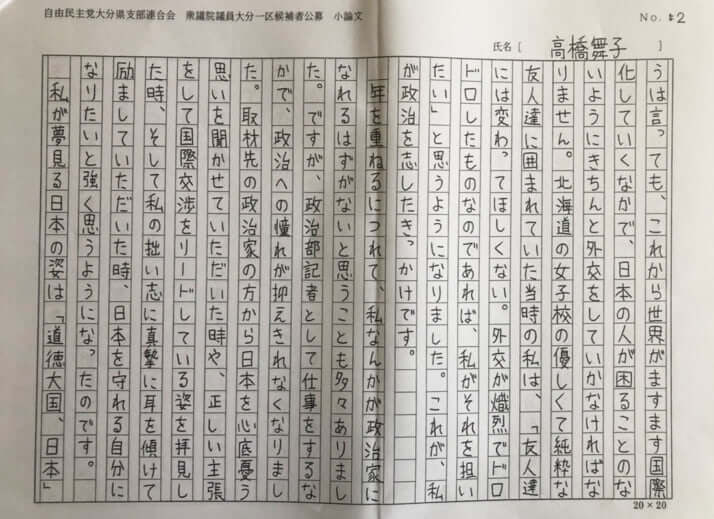 自由民主党大分県支部連合会　衆議院議員大分一区候補者公募　小論文
No. #2
氏名［　高橋舞子　］
うは言っても、これから世界がますます国際
化していくなかで、日本の人が困ることのな
いようにきちんと外交をしていかなければな
りません。北海道の女子校の優しくて純粋な
友人達に囲まれていた当時の私は、「友人達
には変わってほしくない。外交が熾烈でドロ
ドロしたものなのであれば、私がそれを担い
たい」と思うようになりました。これが、私
が政治を志したきっかけです。
　年を重ねるにつれて、私なんかが政治家に
なれるはずがないと思うことも多々ありまし
た。ですが、政治部記者として仕事をするな
かで、政治への憧れが抑えきれなくなりまし
た。取材先の政治家の方から日本を心底憂う
思いを聞かせていただいた時や、正しい主張
をして国際交渉をリードしている姿を拝見し
た時、そして私の拙い志に真摯に耳を傾けて
励ましていただいた時、日本を守れる自分に
なりたいと強く思うようになったのです。
　私が夢見る日本の姿は「道徳大国、日本」
20×20